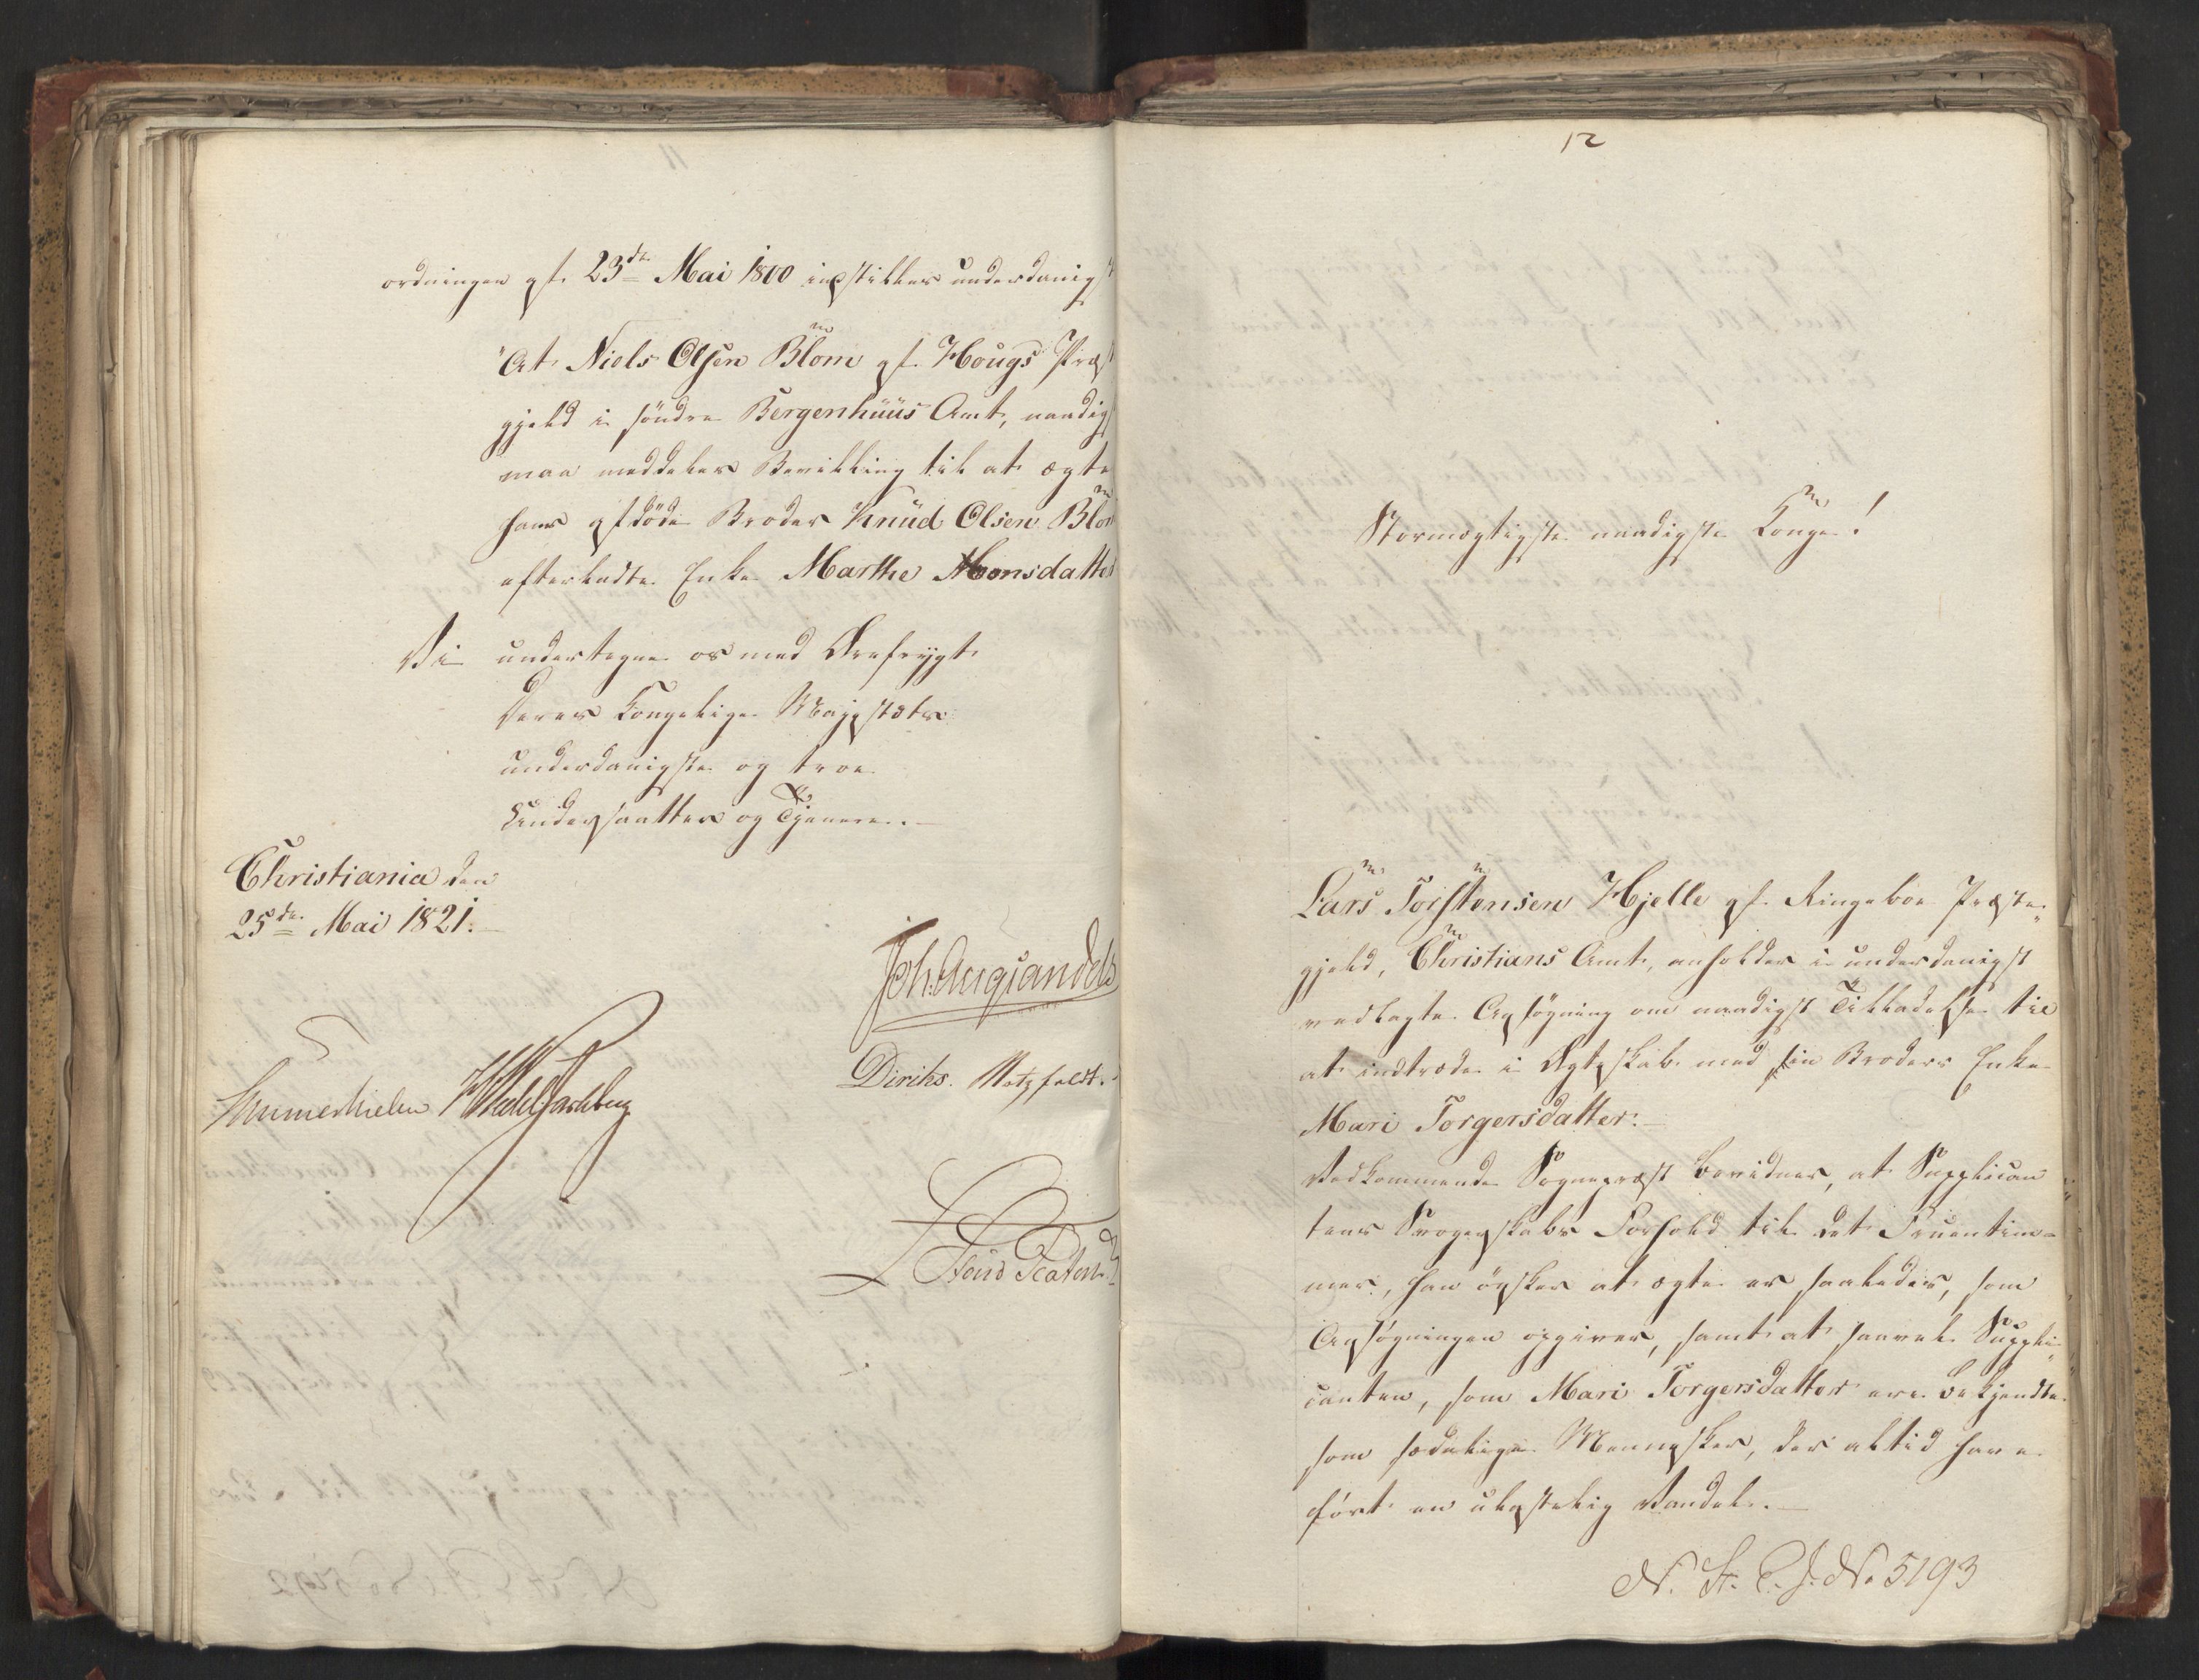 ordningen af 23de Mai 1800 indstilles underdanigst
"At Niels Olsen Blom af Hougs Præste
gjeld i søndre Bergenhuus Amt, naadigst
maa meddeles Bevilling til at ægte
hans afdøde Broder Knud Olsen Blom
efterladte Enke Marthe Monsdatter
Vi undertegne os med Ærefrygt
Deres Kongelige Majestæts
underdanigste og troe
Undersaatter og Tjenere.
Christiania den
25de Mai 1821.
Joh. Aug. Sandels
Sommerhielm
Diriks. Motzfeldt.
12
Stormægtigste naadigste Konge!
Lars Torstensen Hjelle af Ringeboe Præste
gjeld, Christians Amt, anholder i underdanigst
vedlagte Ansøgning om naadigst Tilladelse til
at indtræde i Ægteskab med sin Broders Enke
Mari Torgersdatter.
Vedkommende Sognepræst bevidner, at Supplican
tens Svogerskabs Forhold til det Fruentim-
mer, han ønsker at ægte er saaledes, som
Ansøgningen opgiver, samt at saavel Suppli
canten, som Mari Torgersdatter ere bekjendte
som sædelige Mennesker, der altid have
ført en ulastelig Vandel.
N. St. C. J. No 5193